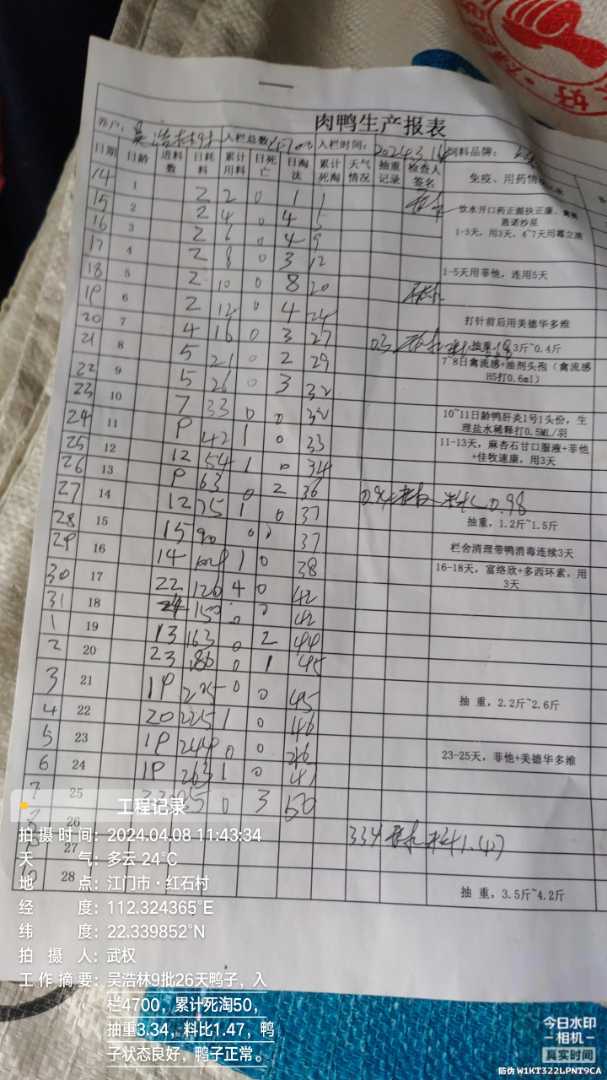 肉鸭生产报表
养户: 吴浩林 入栏总数 入栏时间: 2024.3.14 饲料品牌:
日期 日龄 进料数 日耗料 累计用料 日死亡 日淘汰 累计死淘 天气情况 抽重记录 检查人签名 免疫、用药情
14 1 2 2 0 1 1
15 2 2 4 0 4 5
饮水开口药正面扶正康、
1-3天，用3天，4~7天用霉立滴
16 3 2 6 0 4 9
17 4 2 8 0 3 12
18 5 2 10 0 8 20
1-5天用菲他，连用5天
19 6 2 12 0 4 24
打针前后用美德华多维
20 7 4 16 0 3 27
抽重，3斤~0.4斤
21 8 5 21 0 2 29
7~8日禽流感+油剂头孢（禽流感H5打0.6ml）
22 9 5 26 0 3 32
23 10 7 33 0 0 32
10~11日龄鸭肝炎1号1头份，生理盐水稀释打0.5ML/羽
24 11 9 42 0 33
11-13天，麻杏石甘口服液+菲他+佳牧速康，用3天
25 12 12 54 1 0 34
26 13 9 63 0 2 36
27 14 12 75 1 0 37
0.98
抽重，1.2斤~1.5斤
28 15 15 90 0 37
栏舍清理带鸭消毒连续3天
29 16 14 104 1 0 38
16-18天，富络欣+多西环素，用3天
30 17 22 126 4 0 42
31 18 150 0 42
1 19 13 163 0 2 44
2 20 23 186 0 1 45
3 21 19 205 0 0 45
抽 重，2.2斤~2.6斤
4 22 20 225 1 0 46
5 23 19 244 0 0 46
23-25天，菲他+美德华多维
6 24 19 263 1 0 47
7 25 0 3 50
26
27
3.34 料1.47
28
抽 重，3.5斤~4.2斤
工程记录
拍摄时间：2024.04.08 11:43:34
天 气：多云 24℃
地 点：江门市·红石村
经 度：112.324365°E
纬 度：22.339852°N
拍 摄 人：武权
工作摘要：吴浩林9批26天鸭子，入
栏4700，累计死淘50，
抽重3.34，料比1.47，鸭
子状态良好，鸭子正常。
今日水印
相机
真实时间
防伪 W1KT322LPNT9CA